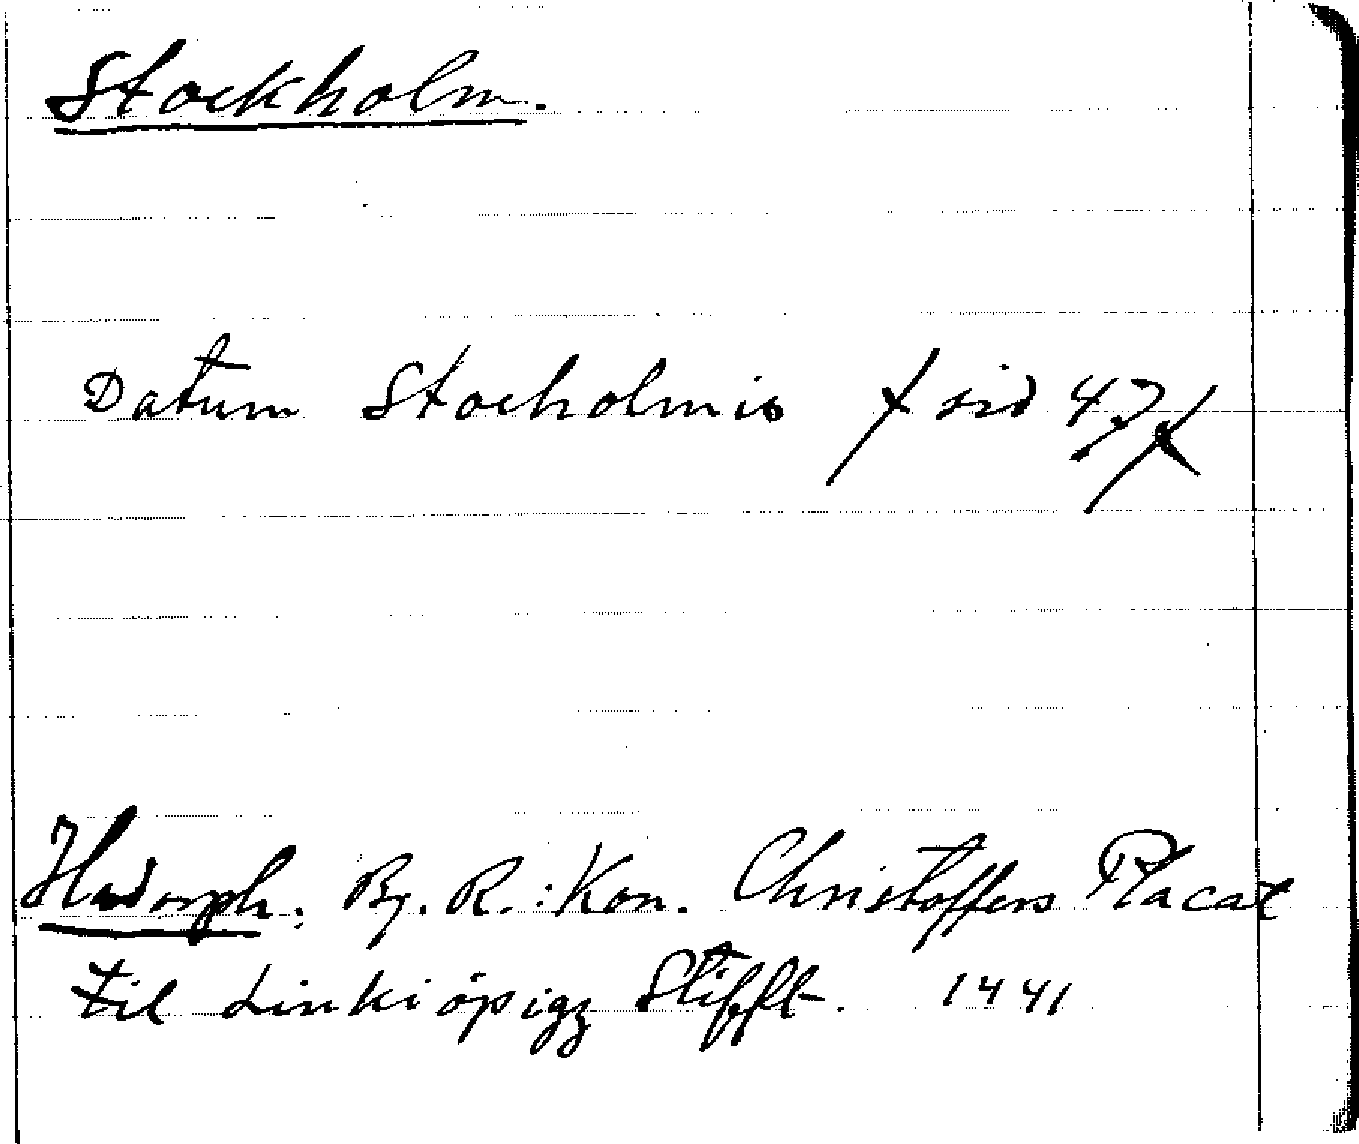 Stockholm.
Datum Stocholmis / sid 47/
Hadorph. Bj. R.: Kon. Christoffers Placat
til Linkiöpigz Stifft. 1441